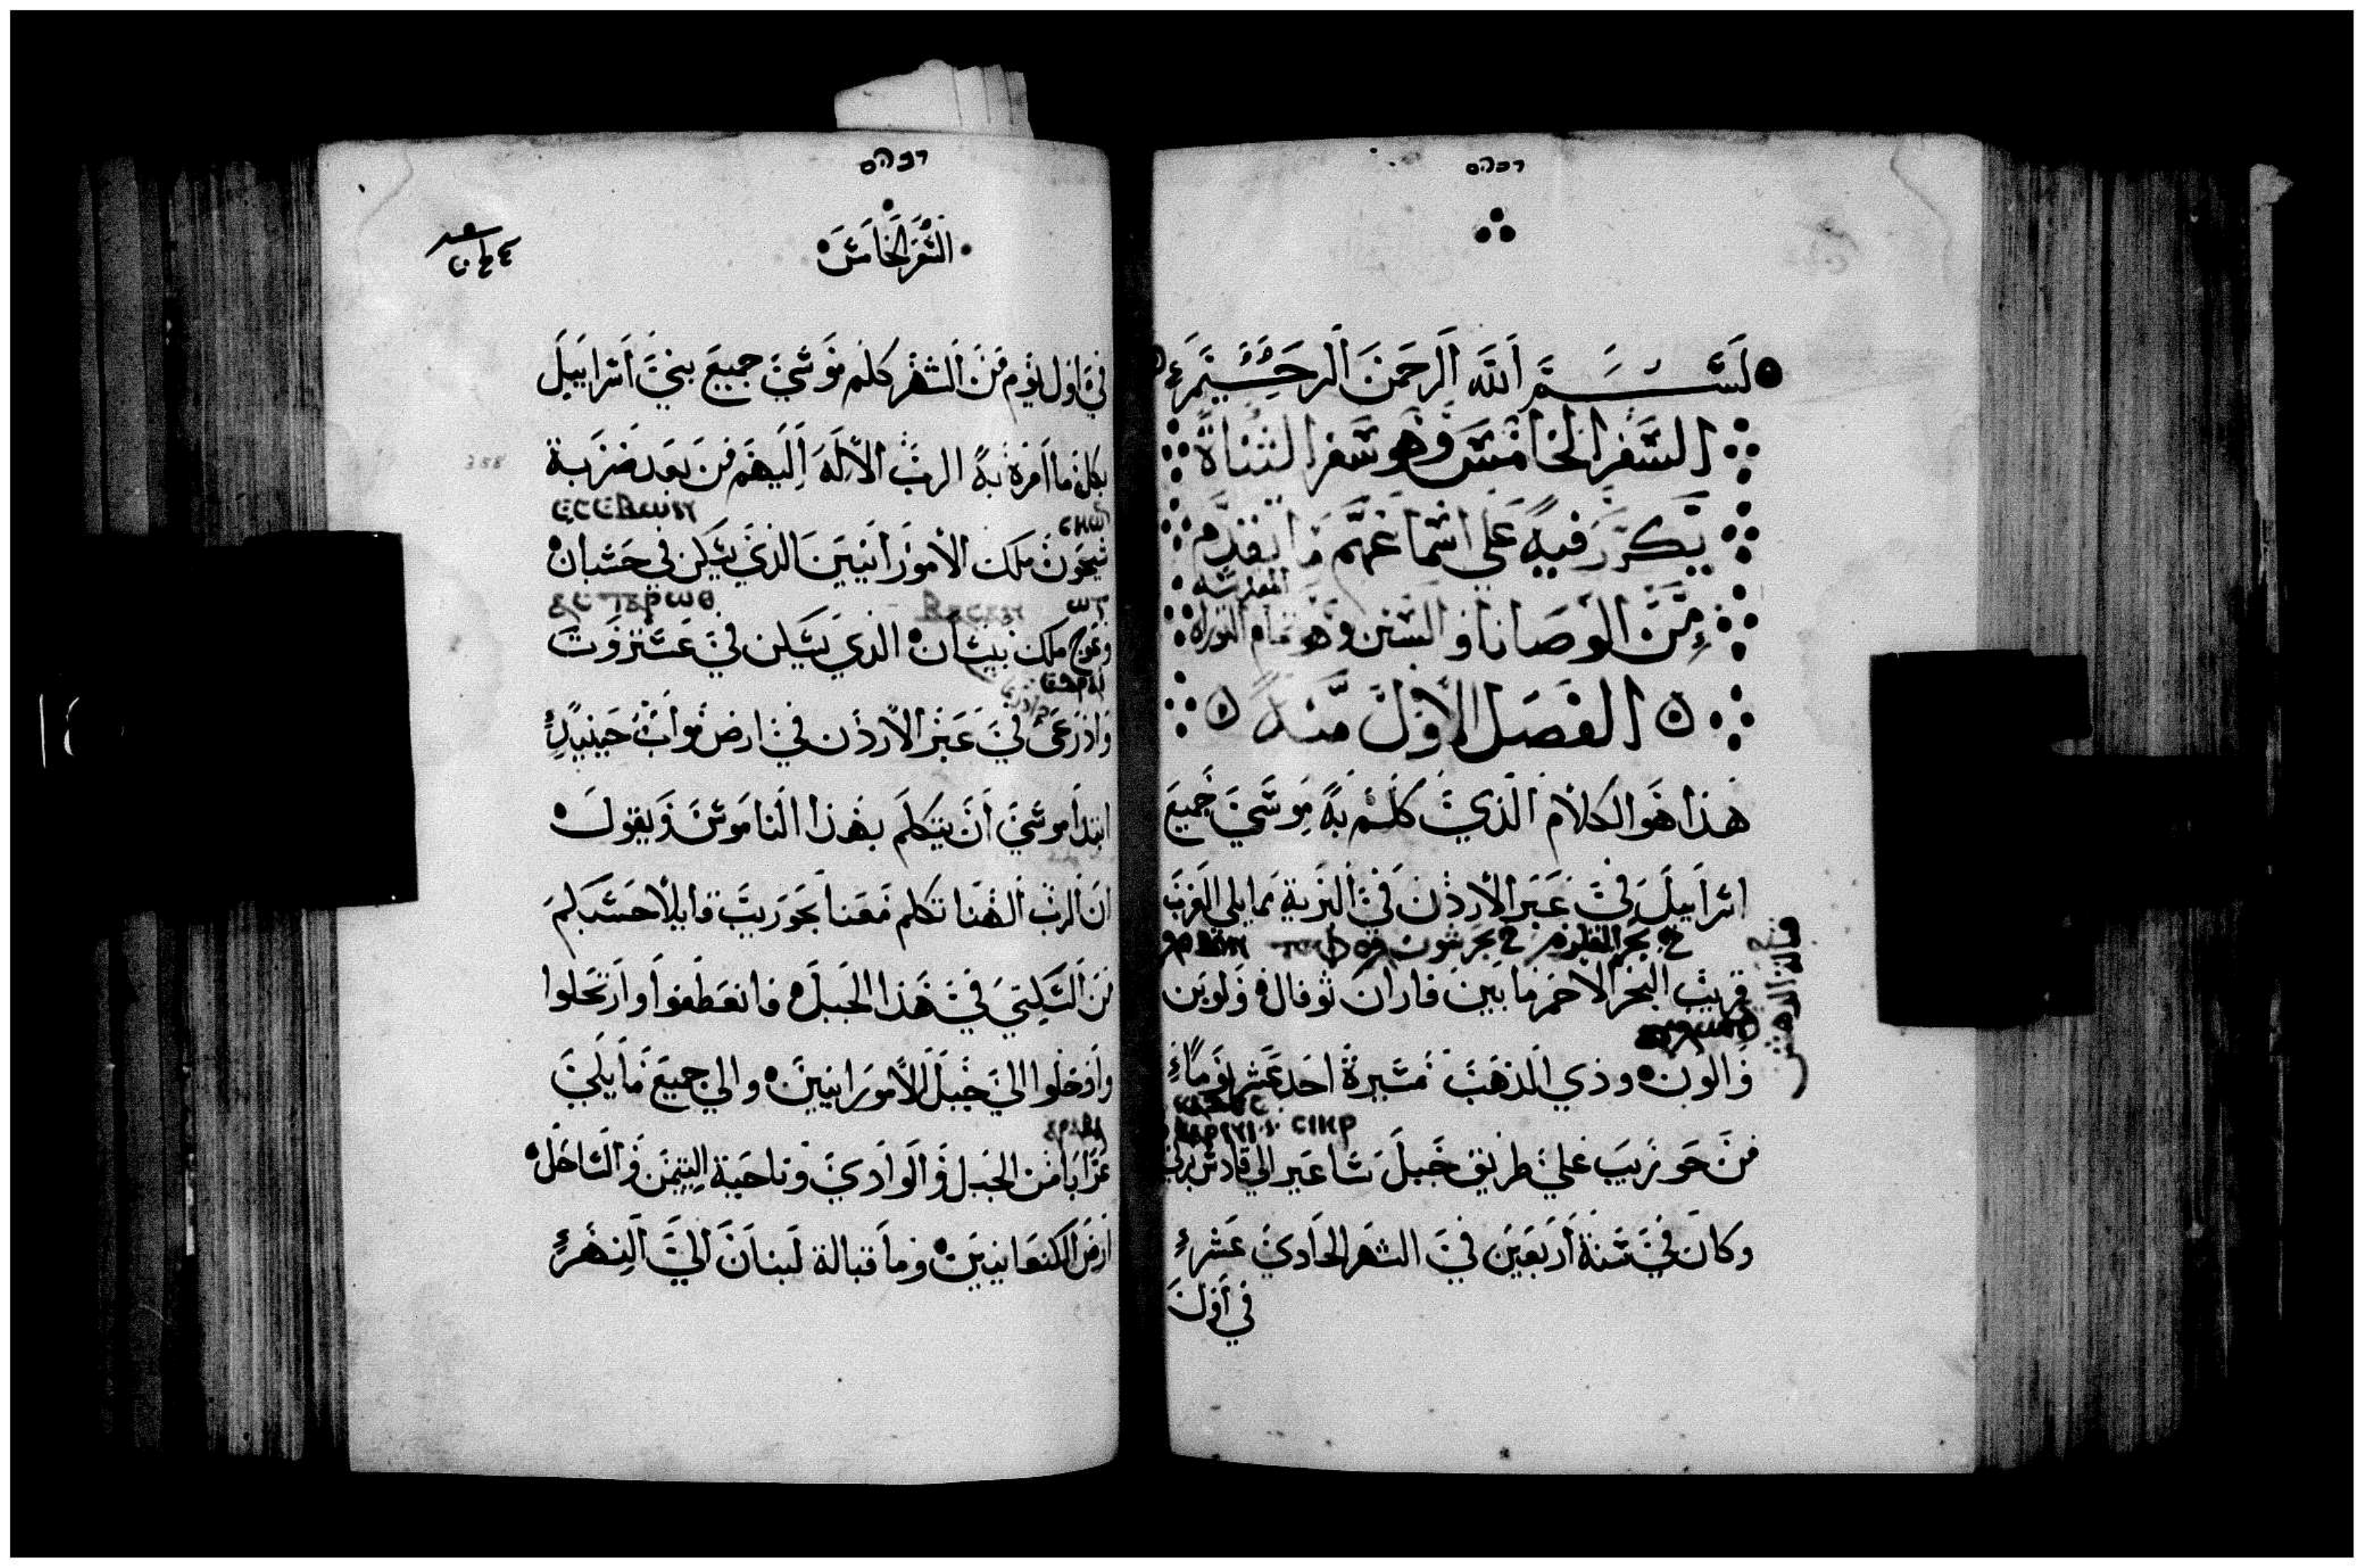 بسم الله الرحمن الرحيم
السفر الخامس وهو سفر الثناة
يكرر فيه على اسماعهم ما تقدم
المقدسه
من الوصايا والسنن وهو تمام التوراة
الفصل الاول منه
هذا هو الكلام الذي كلم به موسي جميع
اسراييل في عبر الاردن في البرية مما يلي الغرب
قريب البحر الاحمر ما بين فاران توفال ولوبن
والون وذي الذهب مسيرة احد عشر يوماء
من حوريب علي طريق جبل ساعير الي قادش برني
وكان في سنة اربعين في الشهر الحادي عشر
في اول
السفر الخامس
في اول يوم من الشهر كلم موسي جميع بني اسراييل
بكل ما امره به الرب الاله اليهم من بعد ضربة
ⲉⲥⲉⲃⲱⲛ ⲥⲏⲱⲛ
سيحون ملك الامورانيين الذي يسكن في حسبان
ⲱⲅ
وعوج ملك بيسان الذي يسكن في عستروت
واذرعي في عبر الاردن في ارض مواب حينيذ
ابتدا موسي ان يتكلم بهذا الناموس ويقول
ان الرب الهنا تكلم معنا بحوريب قايلا حسبكم
من السكني في هذا الجبل فانعطفوا وارتحلوا
وادخلوا الي جبل الامورانيين والي جميع ما يلي
عرابا من الجبل والوادي وناحية اليتيمن والساحل
ارض الكنعانيين وما قبالة لبنان الي النهر